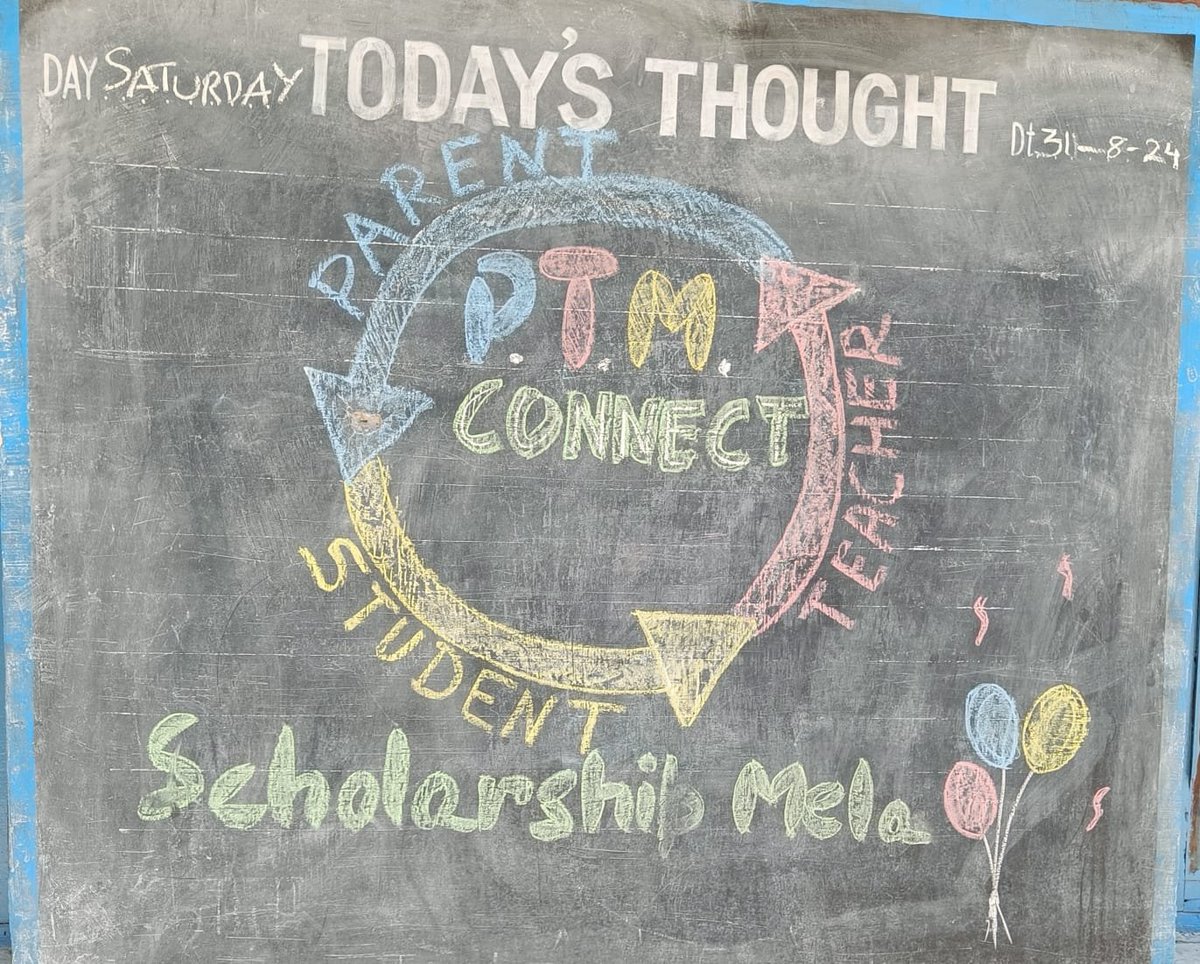 DAY SATURDAY TODAY'S THOUGHT Dt. 31-8-24
PARENT
P.T.M.
CONNECT
TEACHER
STUDENT
Scholarship Mela